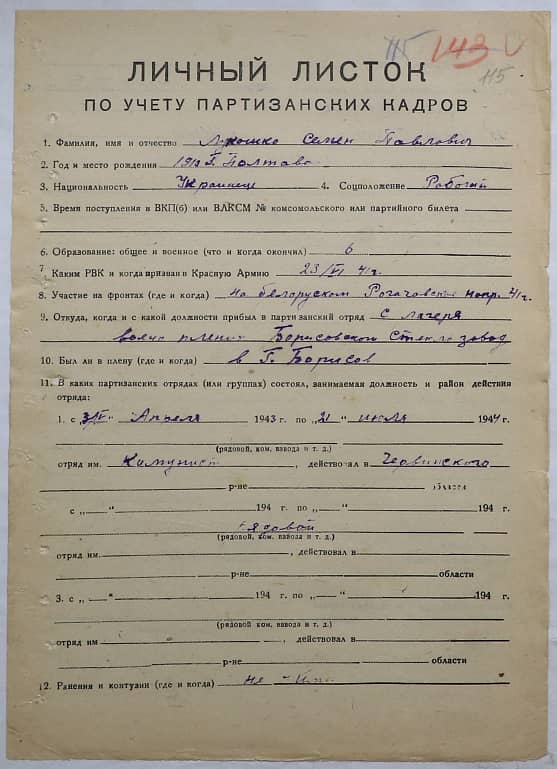 115 143
115
ЛИЧНЫЙ ЛИСТОК
ПО УЧЕТУ ПАРТИЗАНСКИХ КАДРОВ
1. Фамилия, имя и отчество Лукошко Семен Павлович
2. Год и место рождения 1919 г. Полтава
3. Национальность Украинец 4. Соцположение Рабочий
5. Время поступления в ВКП(б) или ВЛКСМ № комсомольского или партийного билета —
6. Образование: общее и военное (что и когда окончил) 6
7 Каким РВК и когда призван в Красную Армию 23/VI 41 г.
8. Участие на фронтах (где и когда) на белоруском Рогачовское напр. 41 г.
9. Откуда, когда и с какой должности прибыл в партизанский отряд с лагеря
пленных Борисовский завод
10. Был ли в плену (где и когда) в г. Борисов
11. В каких партизанских отрядах (или группах) состоял, занимаемая должность и район действия
отряда:
1. с " Апреля 1943 г. по „21" июля 1944 г.
(рядовой, ком. взвода и т. д.)
отряд им. Камунист, действовал в Червинского
р-не области
с „—" 194 г. по „—" 194 г.
Рядовой
(рядовой, ком. взвода и т. д.)
отряд им. , действовал в
р-не области
3. с „—" 194 г. по „—" 194 г.
(рядовой, ком. взвода и т. д.)
отряд им. , действовал в
р-не области
12. Ранения и контузии (где и когда) не